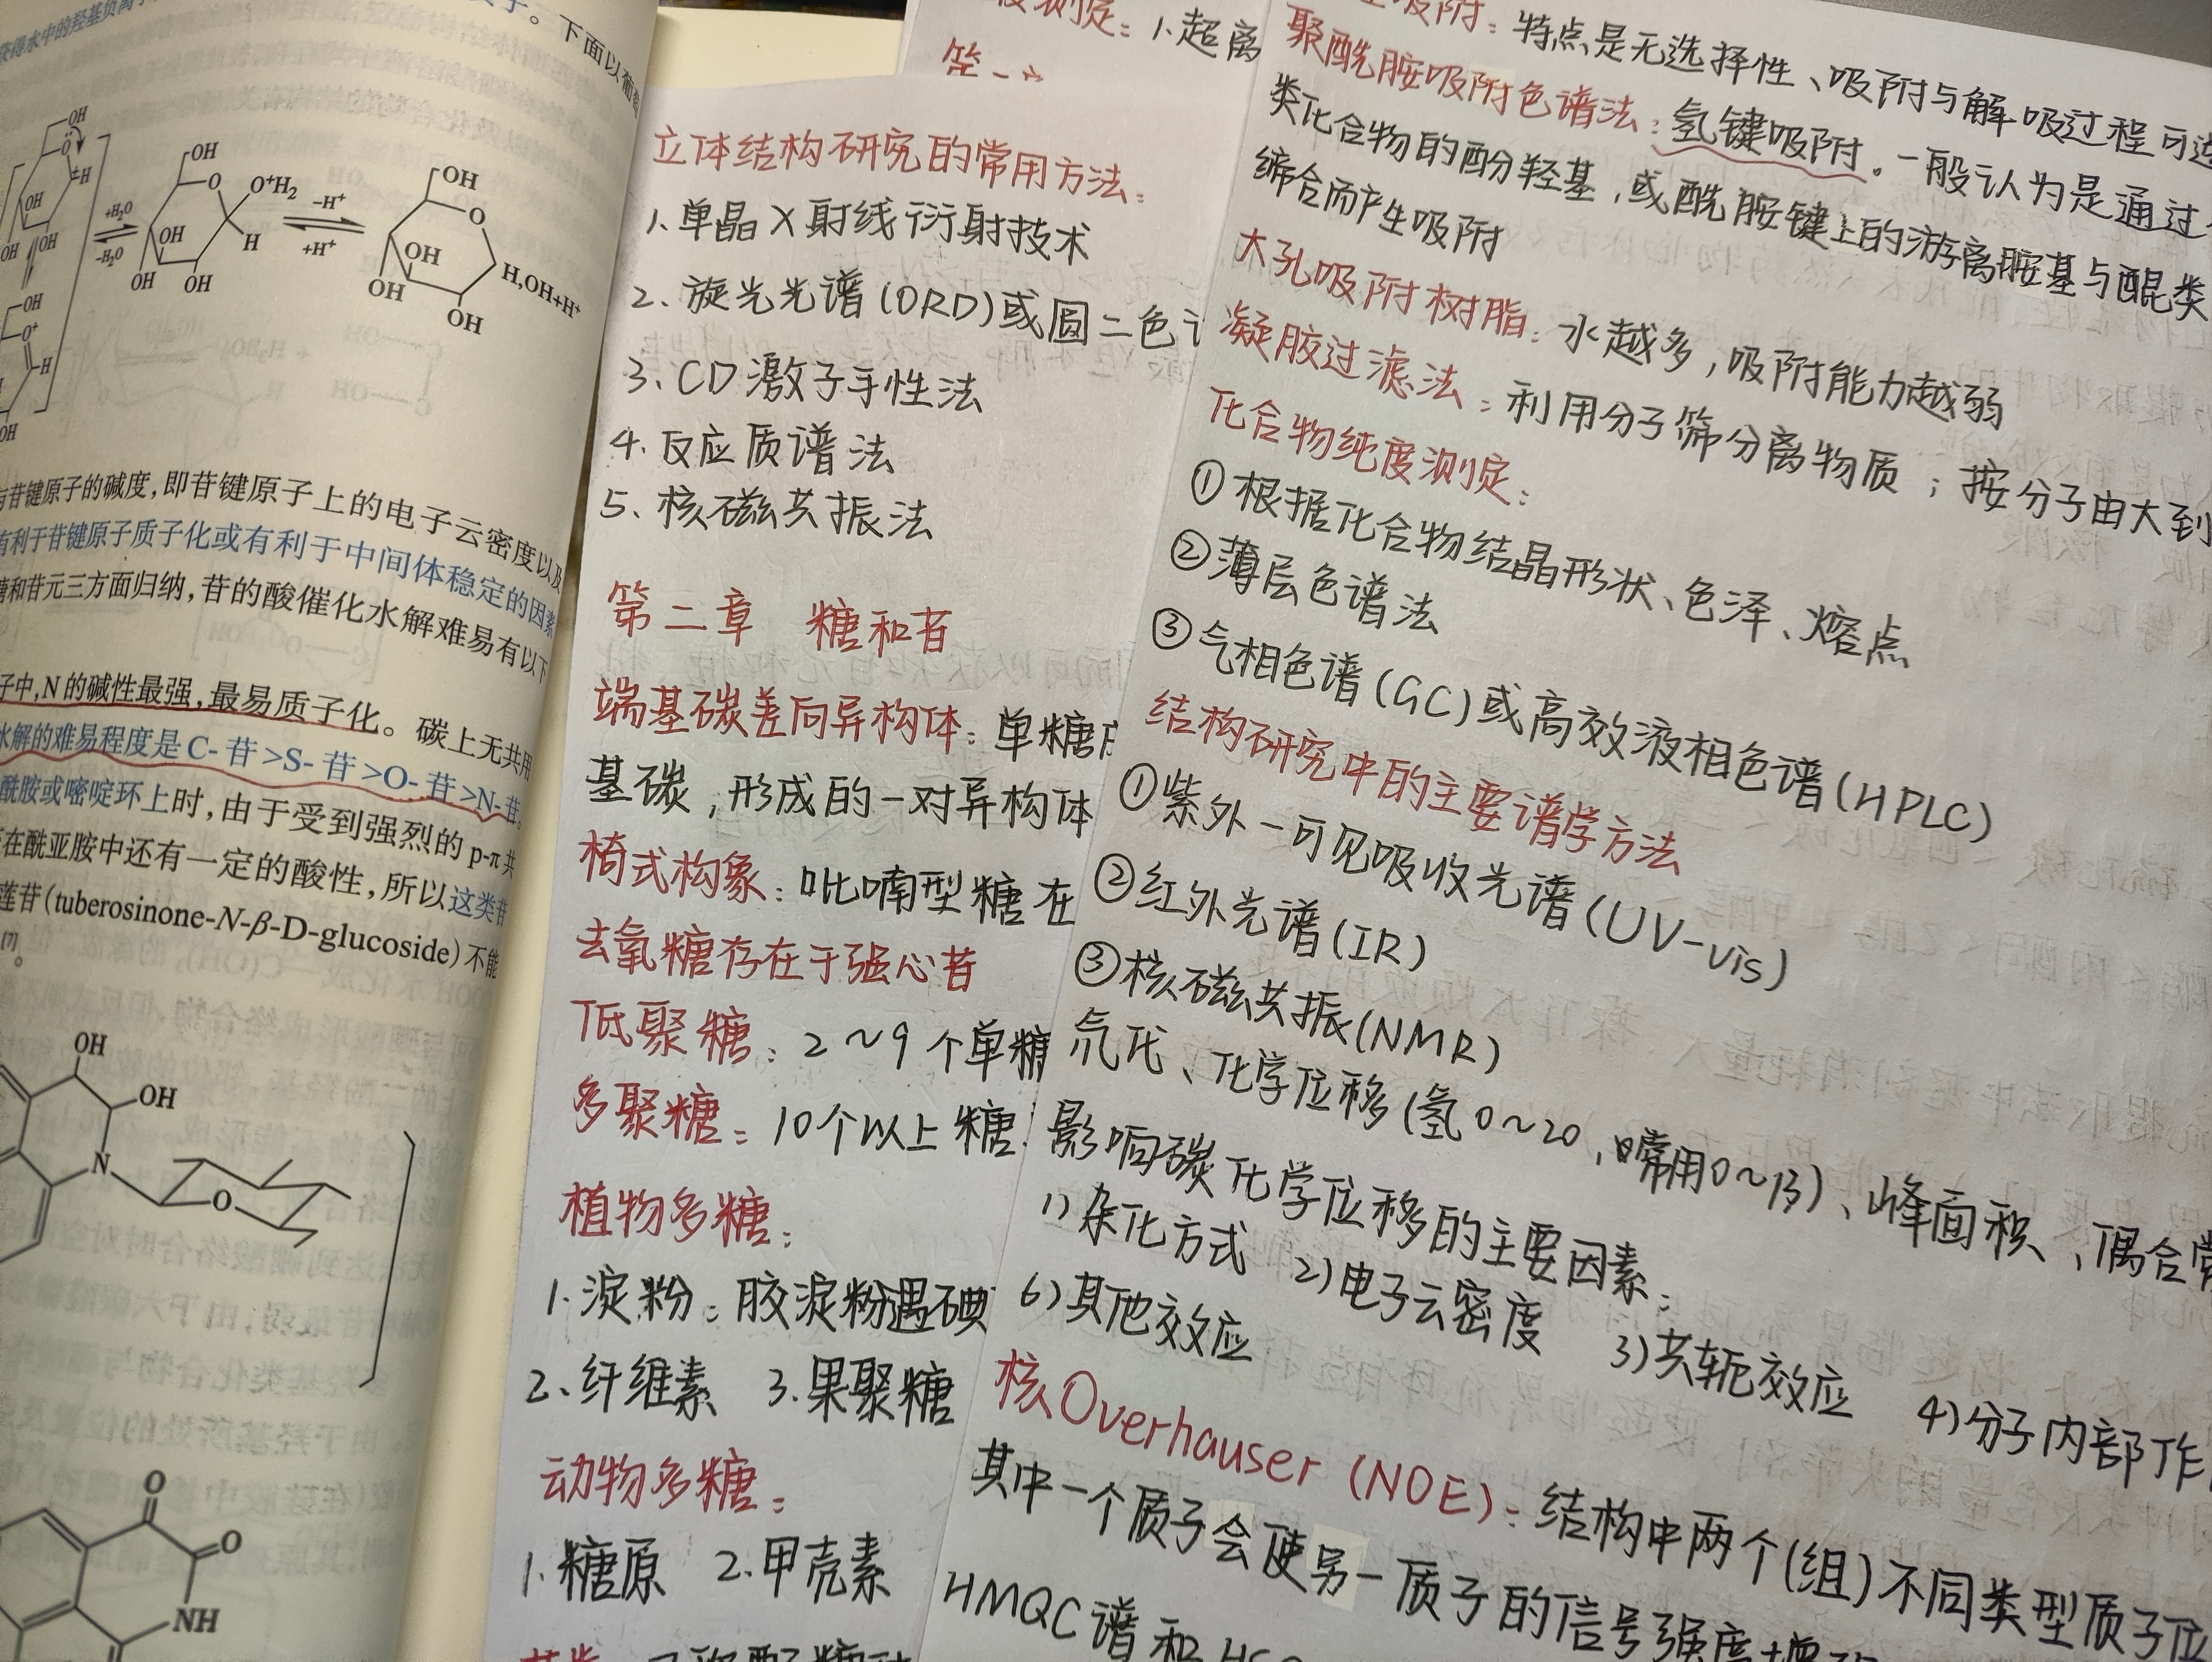 获得水中的羟基负离子
下面以葡萄
OH
OH
H
OH
OH
OH
+H₂O
-H₂O
OH
O
O⁺H₂
OH
H
OH
OH
-H⁺
+H⁺
OH
O
OH
OH
OH
H,OH+H⁺
OH
O⁺
H
OH
苷键原子的碱度,即苷键原子上的电子云密度以及
有利于苷键原子质子化或有利于中间体稳定的因素
糖和苷元三方面归纳,苷的酸催化水解难易有以下
子中,N的碱性最强,最易质子化。碳上无共用
水解的难易程度是C-苷>S-苷>O-苷>N-苷。
酰胺或嘧啶环上时,由于受到强烈的p-π共
在酰亚胺中还有一定的酸性,所以这类苷
莲苷(tuberosinone-N-β-D-glucoside)不能
[7]。
OH
OH
N
O
O
O
NH
测定:1.超离
立体结构研究的常用方法:
1.单晶X射线衍射技术
2.旋光光谱(ORD)或圆二色
3、CD激子手性法
4.反应质谱法
5、核磁共振法
第二章 糖和苷
端基碳差向异构体:单糖
基碳,形成的一对异构体
椅式构象:吡喃型糖在
去氧糖存在于强心苷
低聚糖:2~9个单糖
多聚糖:10个以上糖
植物多糖:
1.淀粉:胶淀粉遇碘
2、纤维素 3.果聚糖
动物多糖:
1.糖原 2.甲壳素
吸附:特点是无选择性、吸附与解吸过程可逆
聚酰胺吸附色谱法:氢键吸附。一般认为是通过
类化合物的酚羟基,或酰胺键上的游离胺基与醌类
缔合而产生吸附
大孔吸附树脂:水越多,吸附能力越弱
凝胶过滤法:利用分子筛分离物质;按分子由大到
化合物纯度测定:
①根据化合物结晶形状、色泽、熔点
②薄层色谱法
③气相色谱(GC)或高效液相色谱(HPLC)
结构研究中的主要谱学方法
①紫外-可见吸收光谱(UV-vis)
②红外光谱(IR)
③核磁共振(NMR)
氘代、化学位移(氢0~20,常用0~13)、峰面积、偶合常
影响碳化学位移的主要因素:
1)杂化方式 2)电子云密度 3)共轭效应 4)分子内部作
6)其他效应
核Overhauser(NOE):结构中两个(组)不同类型质子位
其中一个质子会使另一质子的信号强度增
HMQC谱和